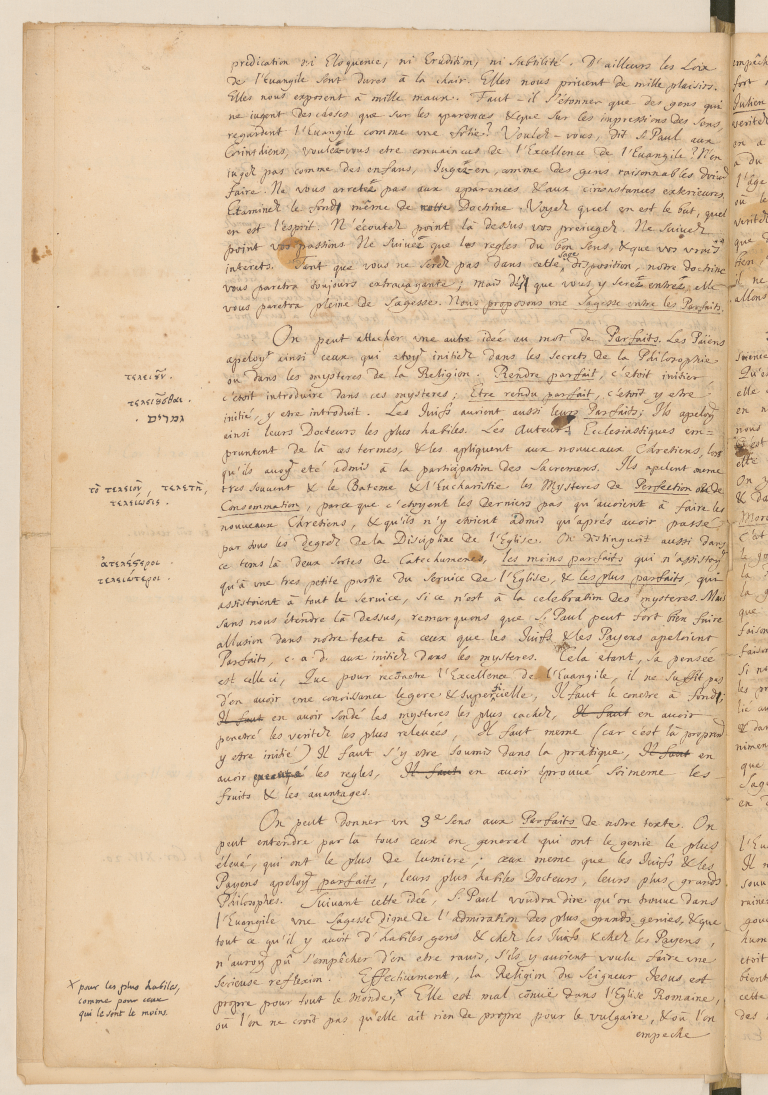 predication ni Eloquence, ni Erudition, ni subtilité. D'ailleurs les Loix
de l'Euangile sont dures à la chair. Elles nous priuent de mille plaisirs.
Elles nous exposent à mille maux. Faut-il s'étonner que des gens qui
ne iugent des choses que sur les aparences & que sur les impressions des sens,
regardent l'Euangile comme vne folie? Voulez-vous, dit S. Paul aux
Corinthiens, voulez-vous etre conuaincus de l'Excellence de l'Euangile? N'en
iugez pas comme des enfans, Iugez-en, comme des gens raisonnables doiuent
faire. Ne vous arretez pas aux aparances & aux circonstances exterieures.
Examinez le fond même de notre Doctrine. Voyez quel en est le but, quel
en est l'esprit. N'écoutez point là dessus vos préiugez. Ne suiuez
point vos passions. Ne suiuez que les regles du bon sens, & que vos vrais
interets. Tant que vous ne serez pas dans cette sage disposition, notre doctrine
vous paretra toujours extrauagante; mais dés que vous y serez entrez, elle
vous paretra pleine de sagesse. Nous proposons vne Sagesse entre les Parfaits.
On peut attacher vne autre idée au mot de Parfaits. Les Païens
apeloyt ainsi ceux qui etoyt initiez dans les Secrets de la Philosophie
ou dans les mysteres de la Religion. Rendre parfait, c'etoit initier
τελειοῦν.
c'etoit introduire dans ces mysteres; Etre rendu parfait, c'etoit y etre
τελειοῦσθαι.
initié, y etre introduit. Les Iuifs auoient aussi leurs Parfaits; Ils apeloyt
גמרים
ainsi leurs Docteurs les plus habiles. Les Auteurs Ecclesiastiques em=
pruntent de là ces termes, & les apliquent aux nouueaux Chrétiens, lors
qu'ils auoyt eté admis à la participation des Sacremens. Ils apelent meme
tres souuent & le Bateme & l'Eucharistie les Mysteres de Perfection ou de
τὸ τελειον, τελετὴ,
τελείωσις.
Consommation, parce que c'etoyent les derniers pas qu'auoient à faire les
nouueaux Chrétiens, & qu'ils n'y etoient admis qu'aprés auoir passé
par tous les degrez de la Discipline de l'Eglise. On distinguoit aussi dans
ce tems là deux sortes de Catechumenes, les moins parfaits qui n'assistoyt
ἀτελέστεροι
τελειωτεροι.
qu'à vne tres petite partie du seruice de l'Eglise, & les plus parfaits, qui
assistoient à tout le seruice, si ce n'est à la celebration des mysteres. Mais
sans nous étendre là dessus, remarquons que S. Paul peut fort bien faire
allusion dans notre texte à ceux que les Iuifs & les Payens apeloient
Parfaits, c. a. d. aux initiez dans les mysteres. Cela étant, sa pensée
est celle ci, Que pour recõnetre l'Excellence de l'Euangile, il ne suffit pas
d'en auoir vne conoissance legere & superficielle, Il faut le conétre à fond;
Il faut en auoir sondé les mysteres les plus cachez, Il faut en auoir
penetré les veritez les plus releuées, Il faut meme (car c'est là proprem̃t
y etre initié) Il faut s'y etre soumis dans la pratique, Il faut en
auoir les regles, Il faut en auoir éprouué soi meme les
fruits & les auantages.
On peut donner vn 3e sens aux Parfaits de notre texte. On
peut entendre par là tous ceux en general qui ont le genie le plus
éleué, qui ont le plus de lumiere; ceux meme que les Iuifs & les
Payens apeloyt parfaits, leurs plus habiles Docteurs, leurs plus grands
Philosophes. Suiuant cette idée, S. Paul voudra dire qu'on trouue dans
l'Euangile vne Sagesse digne de l'admiration des plus grands genies, & que
tout ce qu'il y auoit d'habiles gens & chez les Iuifs & chez les Payens,
n'auroyt pû s'empêcher d'en etre rauis, s'ils y auoient voulu faire vne
serieuse reflexion. Effectiuement, la Religion du Seigneur Iesus est
propre pour tout le monde,x Elle est mal cõnue dans l'Eglise Romaine,
x pour les plus habiles,
comme pour ceux
qui le sont le moins
où l'on ne croit pas qu'elle ait rien de propre pour le vulgaire, & où l'on
empeche